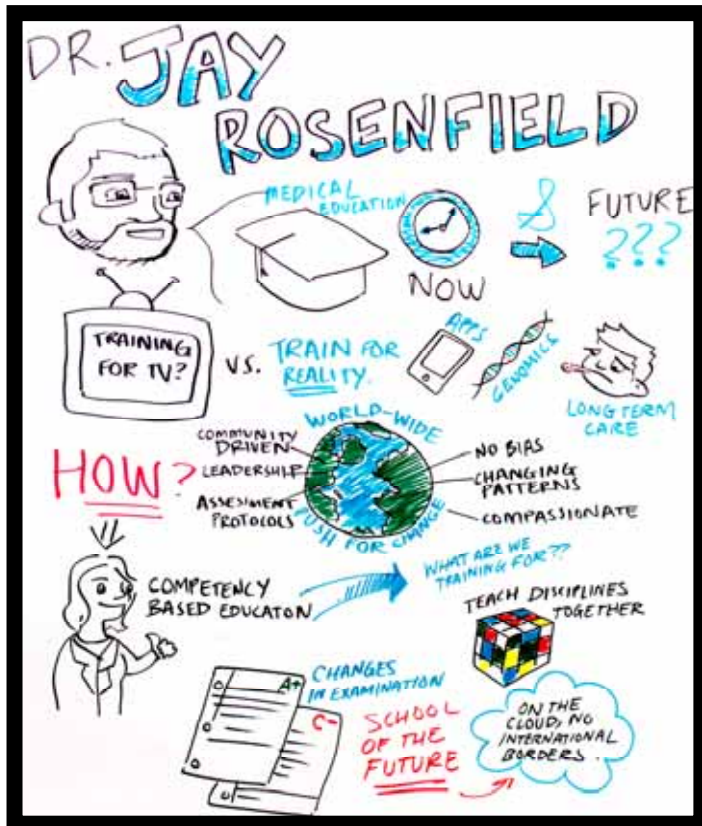 DR. JAY
ROSENFIELD
MEDICAL
EDUCATION
NOW
&
FUTURE
???
TRAINING
FOR TV?
VS.
TRAIN FOR
REALITY.
APPS
GENOMICS
LONG TERM
CARE
HOW?
WORLD-WIDE
PUSH FOR CHANGE
COMMUNITY
DRIVEN
LEADERSHIP
ASSESMENT
PROTOCOLS
NO BIAS
CHANGING
PATTERNS
COMPASSIONATE
COMPETENCY
BASED EDUCATON
WHAT ARE WE
TRAINING FOR??
TEACH DISCIPLINES
TOGETHER
CHANGES
IN EXAMINATION
A+
C-
SCHOOL
OF THE
FUTURE
ON THE
CLOUD, NO
INTERNATIONAL
BORDERS.